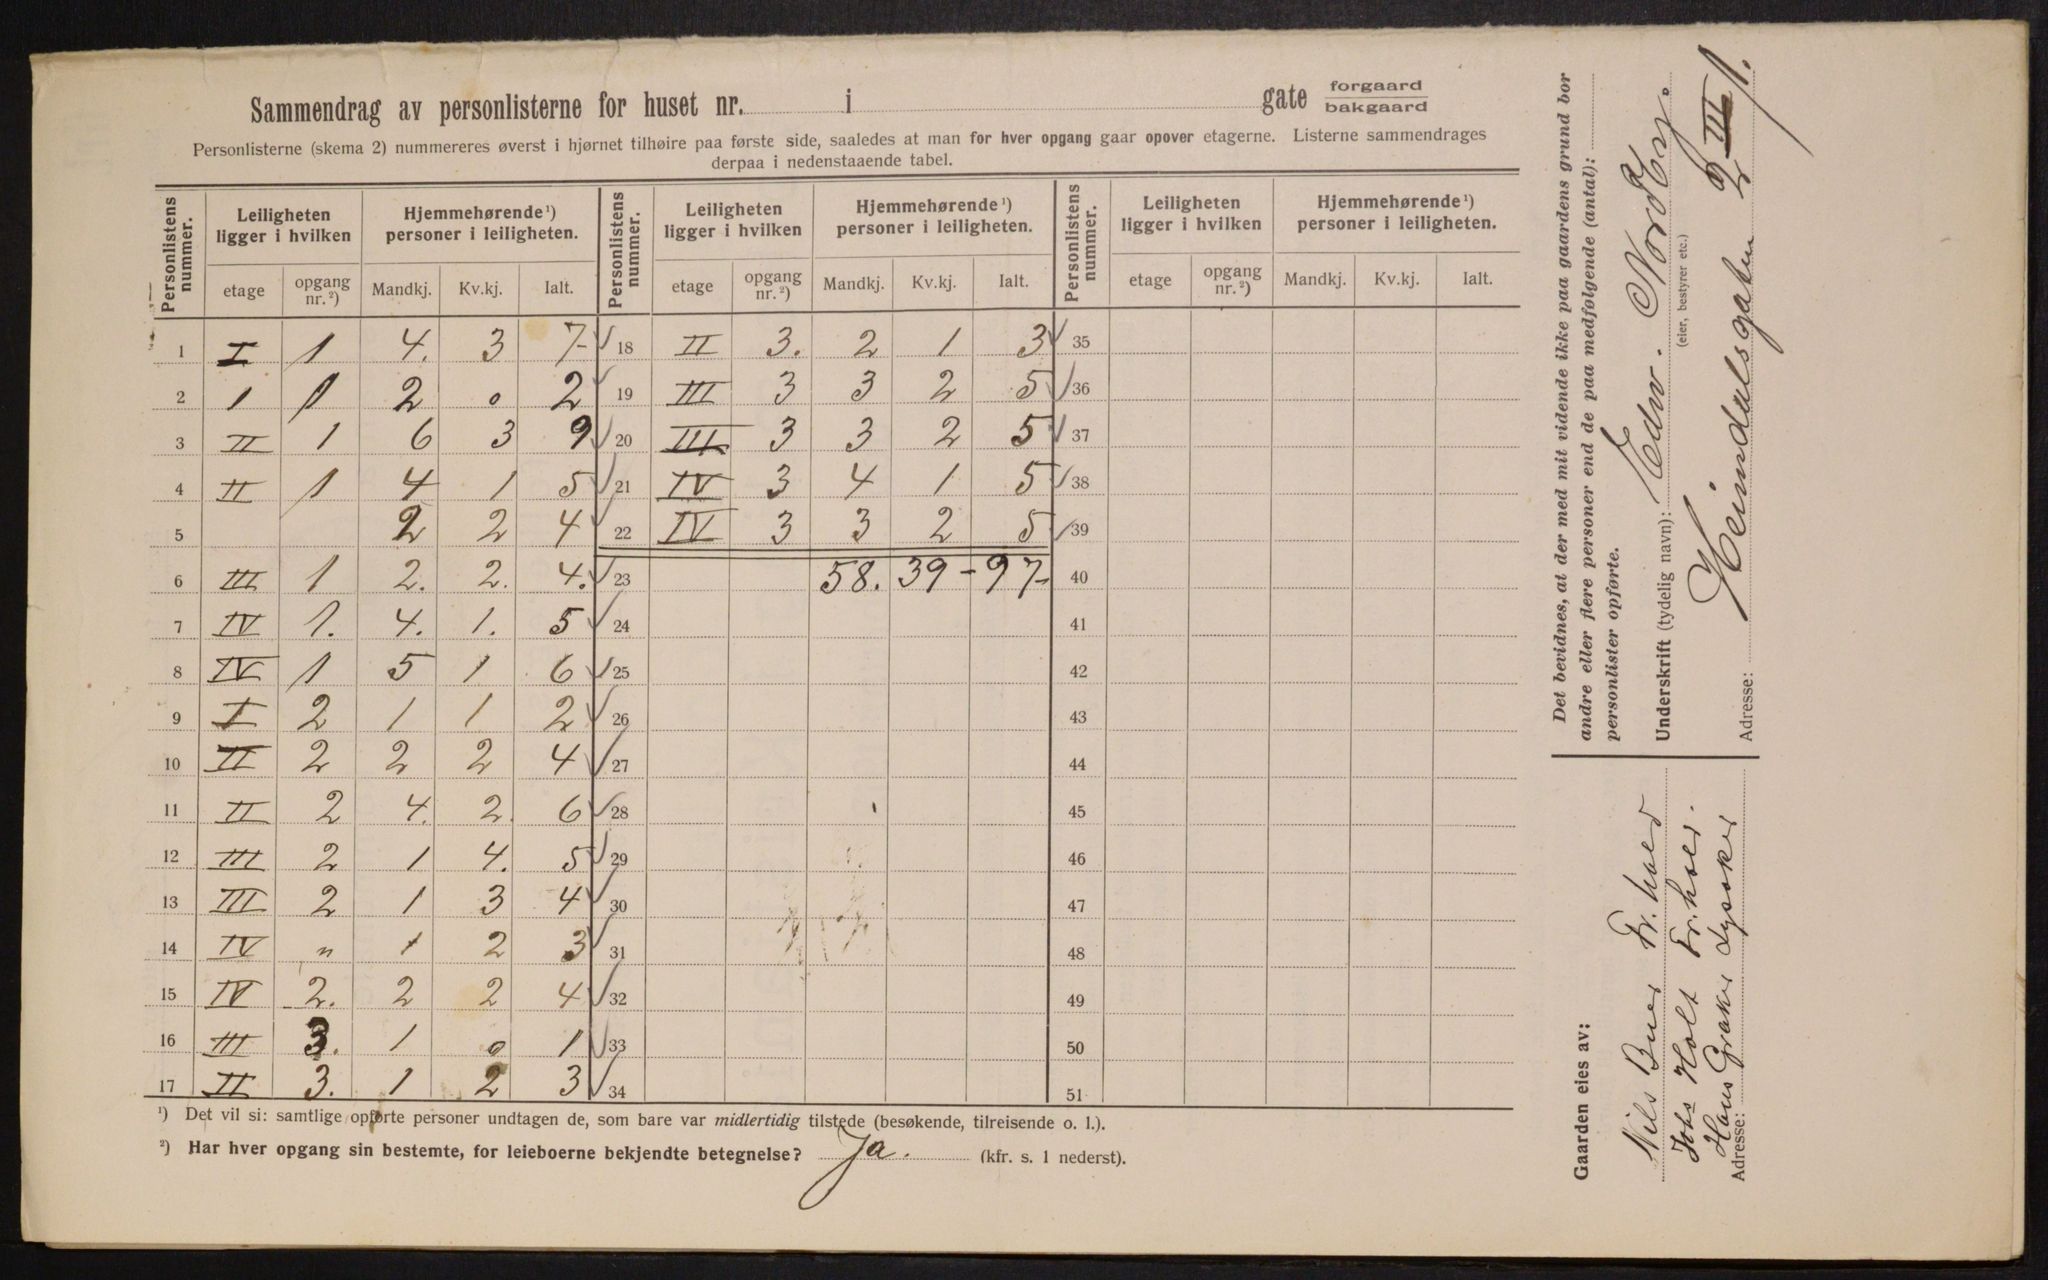 Sammendrag av personlisterne for huset nr. i gate forgaard bakgaard
Personlisterne (skema 2) nummereres øverst i hjørnet tilhøire paa første side, saaledes at man for hver opgang gaar opover etagerne. Listerne sammendrages
derpaa i nedenstaaende tabel.
Personlistens nummer. Leiligheten ligger i hvilken Hjemmehørende ¹) personer i leiligheten. Personlistens nummer. Leiligheten ligger i hvilken Hjemmehørende ¹) personer i leiligheten. Personlistens nummer. Leiligheten ligger i hvilken Hjemmehørende ¹) personer i leiligheten.
etage opgang nr. ²) Mandkj. Kv.kj. Ialt. etage opgang nr. ²) Mandkj. Kv.kj. Ialt. etage opgang nr. ²) Mandkj. Kv.kj. Ialt.
1 I 1 4. 3 7- 18 II 3. 2 1 3 35
2 1 1 2 0 2 19 III 3 3 2 5 36
3 II 1 6 3 9 20 III 3 3 2 5 37
4 II 1 4 1 5 21 IV 3 4 1 5 38
5 2 2 4 22 IV 3 3 2 5 39
6 III 1 2. 2. 4. 23 58. 39 - 97- 40
7 IV 1. 4. 1. 5 24 41
8 IV 1 5 1 6 25 42
9 I 2 1 1 2 26 43
10 II 2 2 2 4 27 44
11 II 2 4. 2. 6 28 45
12 III 2 1 4. 5 29 46
13 III 2 1 3 4 30 47
14 IV " 1 2 3 31 48
15 IV 2. 2 2 4 32 49
16 III 3. 1 0 1 33 50
17 II 3. 1 2 3 34 51
¹) Det vil si: samtlige opførte personer undtagen de, som bare var midlertidig tilstede (besøkende, tilreisende o. l.).
²) Har hver opgang sin bestemte, for leieboerne bekjendte betegnelse? Ja. (kfr. s. 1 nederst).
Det bevidnes, at der med mit vidende ikke paa gaardens grund bor
andre eller flere personer end de paa medfølgende (antal):
personlister opførte.
Underskrift (tydelig navn): Edw. Nordby.
(eier, bestyrer etc.)
Adresse: Heimdalsgaten 2
Gaarden eies av:
Nils Buer Fr. hald
Johs Holt Fr. hald.
Hans Graker Lysaker
Adresse: